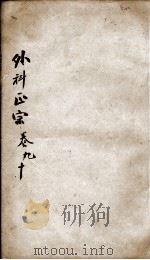 外科正宗卷九十
mtoou.info